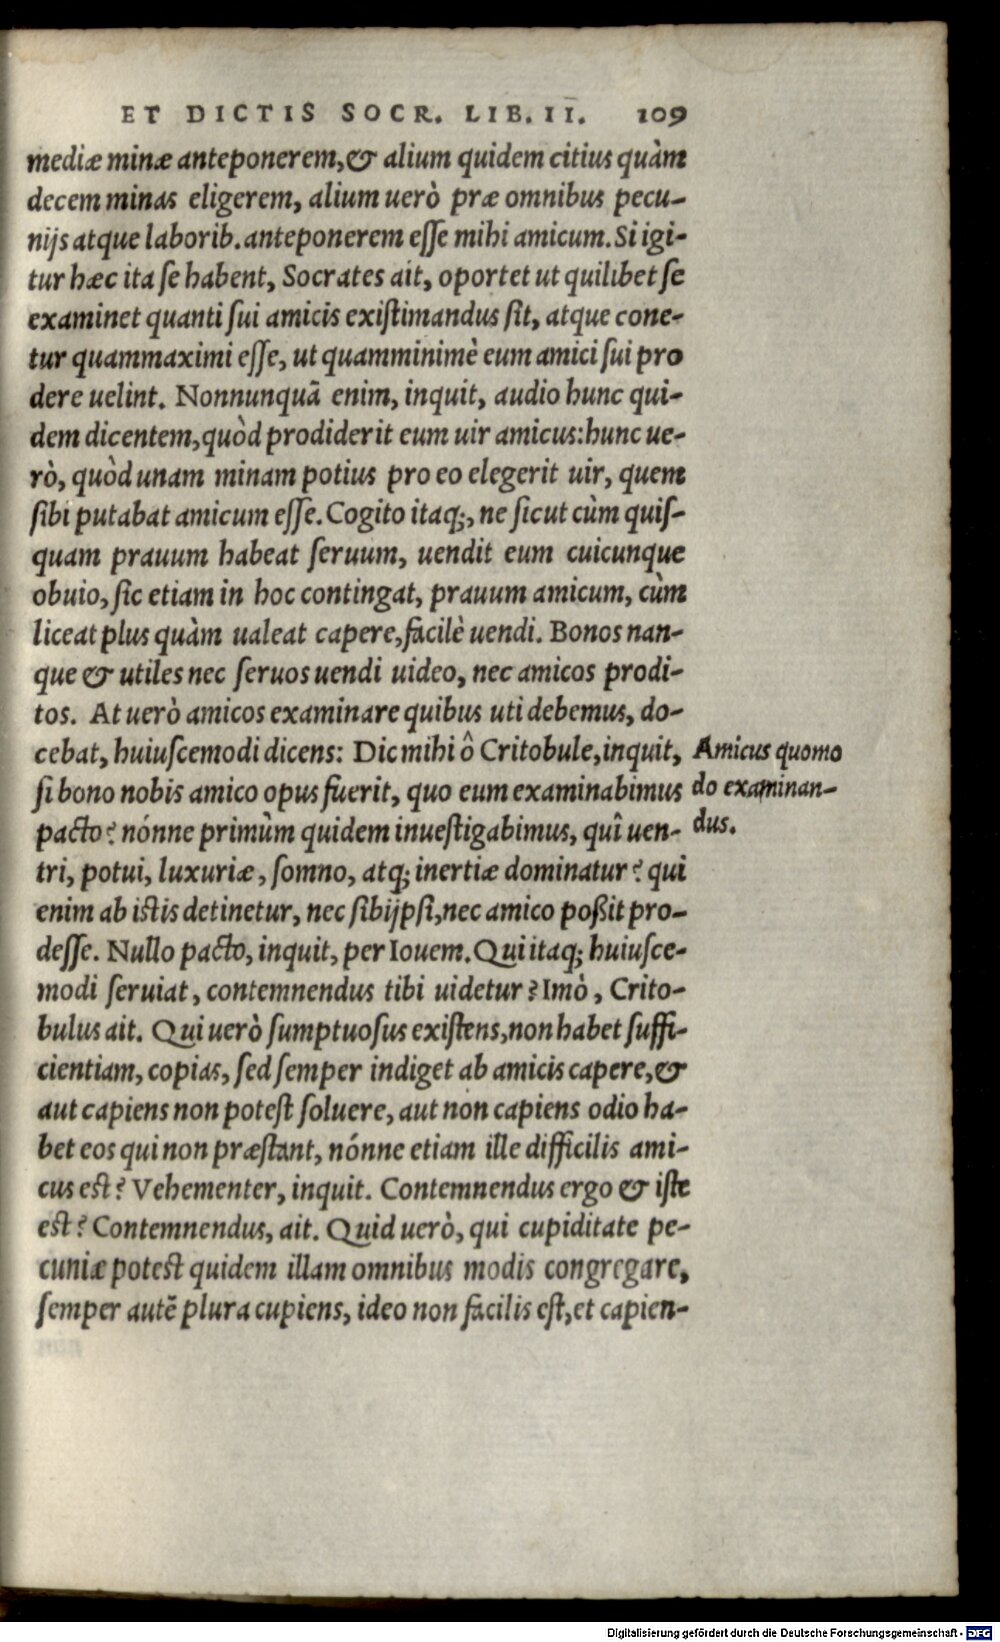 ET DICTIS SOCR. LIB. II. 109
mediæ minæ anteponerem, & alium quidem citius quàm
decem minas eligerem, alium uerò præ omnibus pecu-
nijs atque laborib. anteponerem esse mihi amicum. Si igi-
tur hæc ita se habent, Socrates ait, oportet ut quilibet se
examinet quanti sui amicis existimandus sit, atque cone-
tur quammaximi esse, ut quamminimè eum amici sui pro
dere uelint. Nonnunquā enim, inquit, audio hunc qui-
dem dicentem, quòd prodiderit eum uir amicus: hunc ue-
rò, quòd unam minam potius pro eo elegerit uir, quem
sibi putabat amicum esse. Cogito itaq;, ne sicut cùm quis-
quam prauum habeat seruum, uendit eum cuicunque
obuio, sic etiam in hoc contingat, prauum amicum, cùm
liceat plus quàm ualeat capere, facilè uendi. Bonos nan-
que & utiles nec seruos uendi uideo, nec amicos prodi-
tos. At uerò amicos examinare quibus uti debemus, do-
cebat, huiuscemodi dicens: Dic mihi ô Critobule, inquit,
si bono nobis amico opus fuerit, quo eum examinabimus
pacto? nónne primùm quidem inuestigabimus, quî uen-
tri, potui, luxuriæ, somno, atq; inertiæ dominatur? qui
enim ab istis detinetur, nec sibijpsi, nec amico poßit pro-
desse. Nullo pacto, inquit, per Iouem. Qui itaq; huiusce-
modi seruiat, contemnendus tibi uidetur? Imò, Crito-
bulus ait. Qui uerò sumptuosus existens, non habet suffi-
cientiam, copias, sed semper indiget ab amicis capere, &
aut capiens non potest soluere, aut non capiens odio ha-
bet eos qui non præstant, nónne etiam ille difficilis ami-
cus est? Vehementer, inquit. Contemnendus ergo & iste
est? Contemnendus, ait. Quid uerò, qui cupiditate pe-
cuniæ potest quidem illam omnibus modis congregare,
semper autē plura cupiens, ideo non facilis est, et capien-
Amicus quomo
do examinan-
dus.
Digitalisierung gefördert durch die Deutsche Forschungsgemeinschaft - DFG